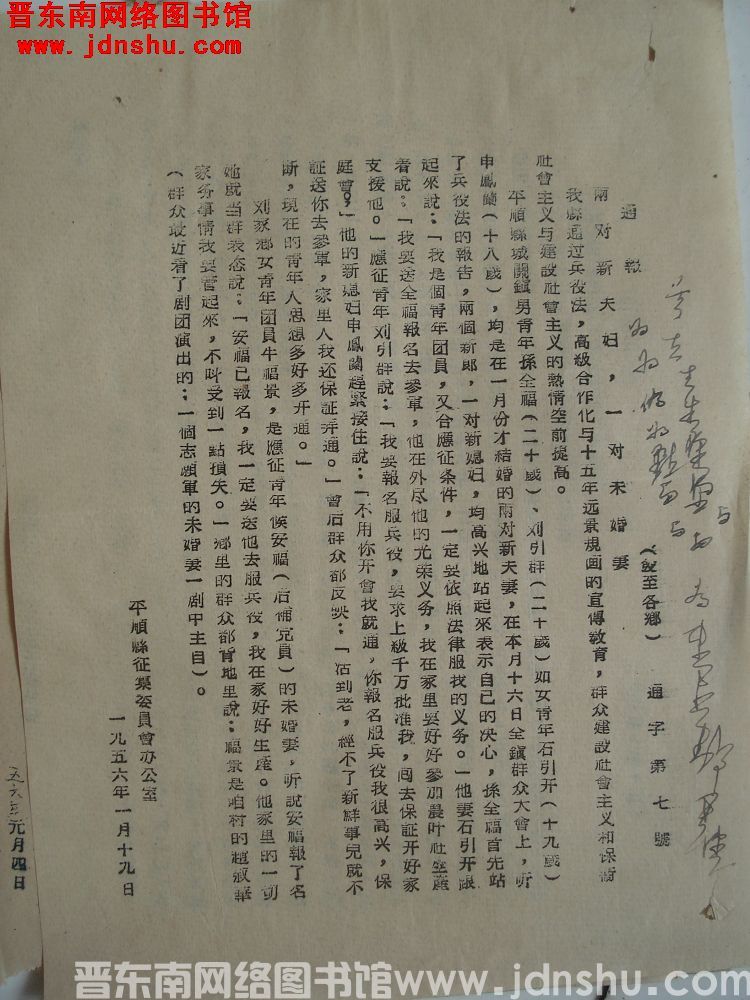 晋东南网络图书馆
www.jdnshu.com
通報
（發至各鄉） 通字第七號
兩对新夫妇，一对未婚妻
我縣通过兵役法，高級合作化与十五年远景規画的宣傳敎育，群众建設社會主义和保衛
社會主义与建設社會主义的熱情空前提高。
平順縣城關鎮男青年孫全福（二十歲）、刘引群（二十歲）如女青年石引开（十九歲）
申鳳蘭（十八歲），均是在一月份才結婚的兩对新夫妻，在本月十六日全鎮群众大會上，听
了兵役法的報告，兩個新郎，一对新媳妇，均高兴地站起來表示自己的决心，孫全福首先站
起來說：「我是個青年团員，又合應征条件，一定要依照法律服我的义务。」他妻石引开跟
着說：「我要送全福報名去參軍，他在外尽他的光荣义务，我在家里要好好參加農叶社生產
支援他。」應征青年刘引群說：「我要報名服兵役，要求上級千万批准我，囘去保証开好家
庭會。」他的新媳妇申鳳蘭趕緊接住說：「不用你开會我就通，你報名服兵役我很高兴，保
証送你去參軍，家里人我还保証弄通。」會后群众都反映：「活到老，經不了新鮮事兒就不
断，現在的青年人思想多好多开通。」
刘家鄉女青年团員牛福景，是應征青年候安福（后補党員）的未婚妻，听說安福報了名
她就当群表态說：「安福已報名，我一定要送他去服兵役，我在家好好生產。他家里的一切
家务事情我要管起來，不叫受到一點損失。」鄉里的群众都背地里說：福景是咱村的趙淑華
（群众最近看了剧团演出的：一個志願軍的未婚妻一剧中主自）。
平順縣征集委員會办公室
一九五六年一月十九日
元月四日
晋东南网络图书馆www.jdnshu.com